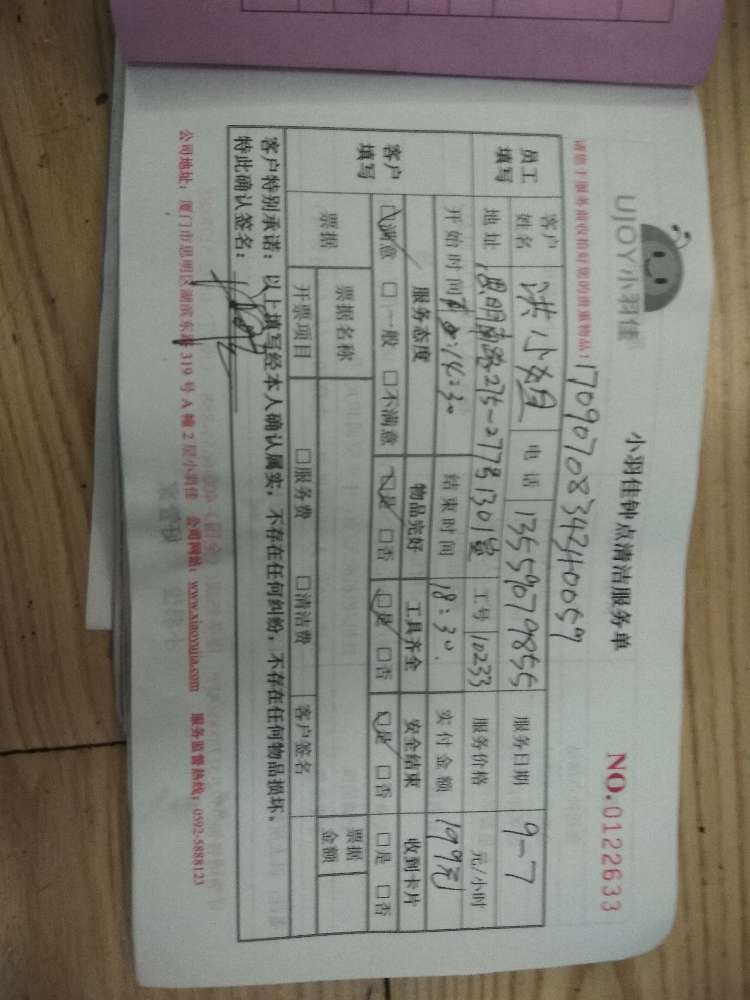 UJOY小羽佳
小羽佳钟点清洁服务单
NO.0122633
请您于服务前收拾好您的贵重物品!
17090708342400057
员工填写
客户姓名 洪小姐 电话 13559079855 服务日期 9-7
地址 思明南路275-277号1301室 工号 10233 服务价格 元/小时
开始时间 14:30 结束时间 18:30. 实付金额 199元
客户填写
服务态度 物品完好 工具齐全 安全结束 收到卡片
☑满意 □一般 □不满意 ☑是 □否 ☑是 □否 ☑是 □否 □是 □否
票据 票据名称 票据金额
开票项目 □服务费 □清洁费 客户签名
客户特别承诺:以上填写经本人确认属实,不存在任何纠纷,不存在任何物品损坏。
特此确认签名:
公司地址:厦门市思明区湖滨东路319号A幢2层小羽佳 公司网站:www.xiaoyujia.com 服务监督热线:0592-5888123